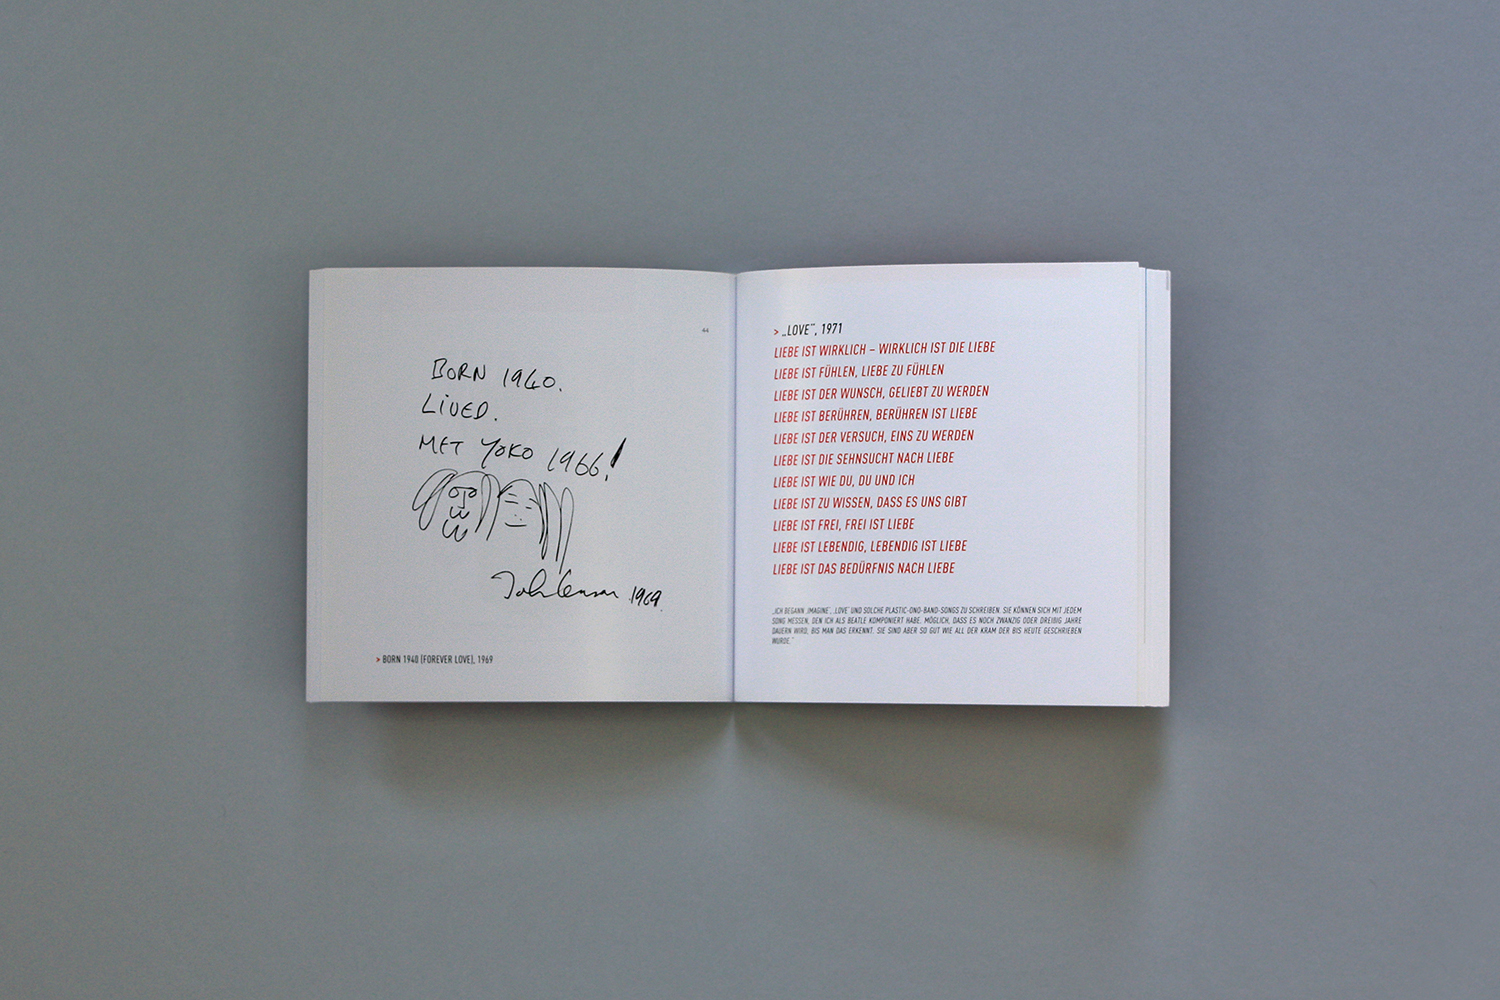 44
BORN 1940.
LIVED.
MET YOKO 1966!
John Lennon 1969.
> BORN 1940 (FOREVER LOVE), 1969
> „LOVE“, 1971
LIEBE IST WIRKLICH – WIRKLICH IST DIE LIEBE
LIEBE IST FÜHLEN, LIEBE ZU FÜHLEN
LIEBE IST DER WUNSCH, GELIEBT ZU WERDEN
LIEBE IST BERÜHREN, BERÜHREN IST LIEBE
LIEBE IST DER VERSUCH, EINS ZU WERDEN
LIEBE IST DIE SEHNSUCHT NACH LIEBE
LIEBE IST WIE DU, DU UND ICH
LIEBE IST ZU WISSEN, DASS ES UNS GIBT
LIEBE IST FREI, FREI IST LIEBE
LIEBE IST LEBENDIG, LEBENDIG IST LIEBE
LIEBE IST DAS BEDÜRFNIS NACH LIEBE
„ICH BEGANN ‚IMAGINE‘, ‚LOVE‘ UND SOLCHE PLASTIC-ONO-BAND-SONGS ZU SCHREIBEN. SIE KÖNNEN SICH MIT JEDEM
SONG MESSEN, DEN ICH ALS BEATLE KOMPONIERT HABE. MÖGLICH, DASS ES NOCH ZWANZIG ODER DREIßIG JAHRE
DAUERN WIRD, BIS MAN DAS ERKENNT. SIE SIND ABER SO GUT WIE ALL DER KRAM DER BIS HEUTE GESCHRIEBEN
WURDE.“